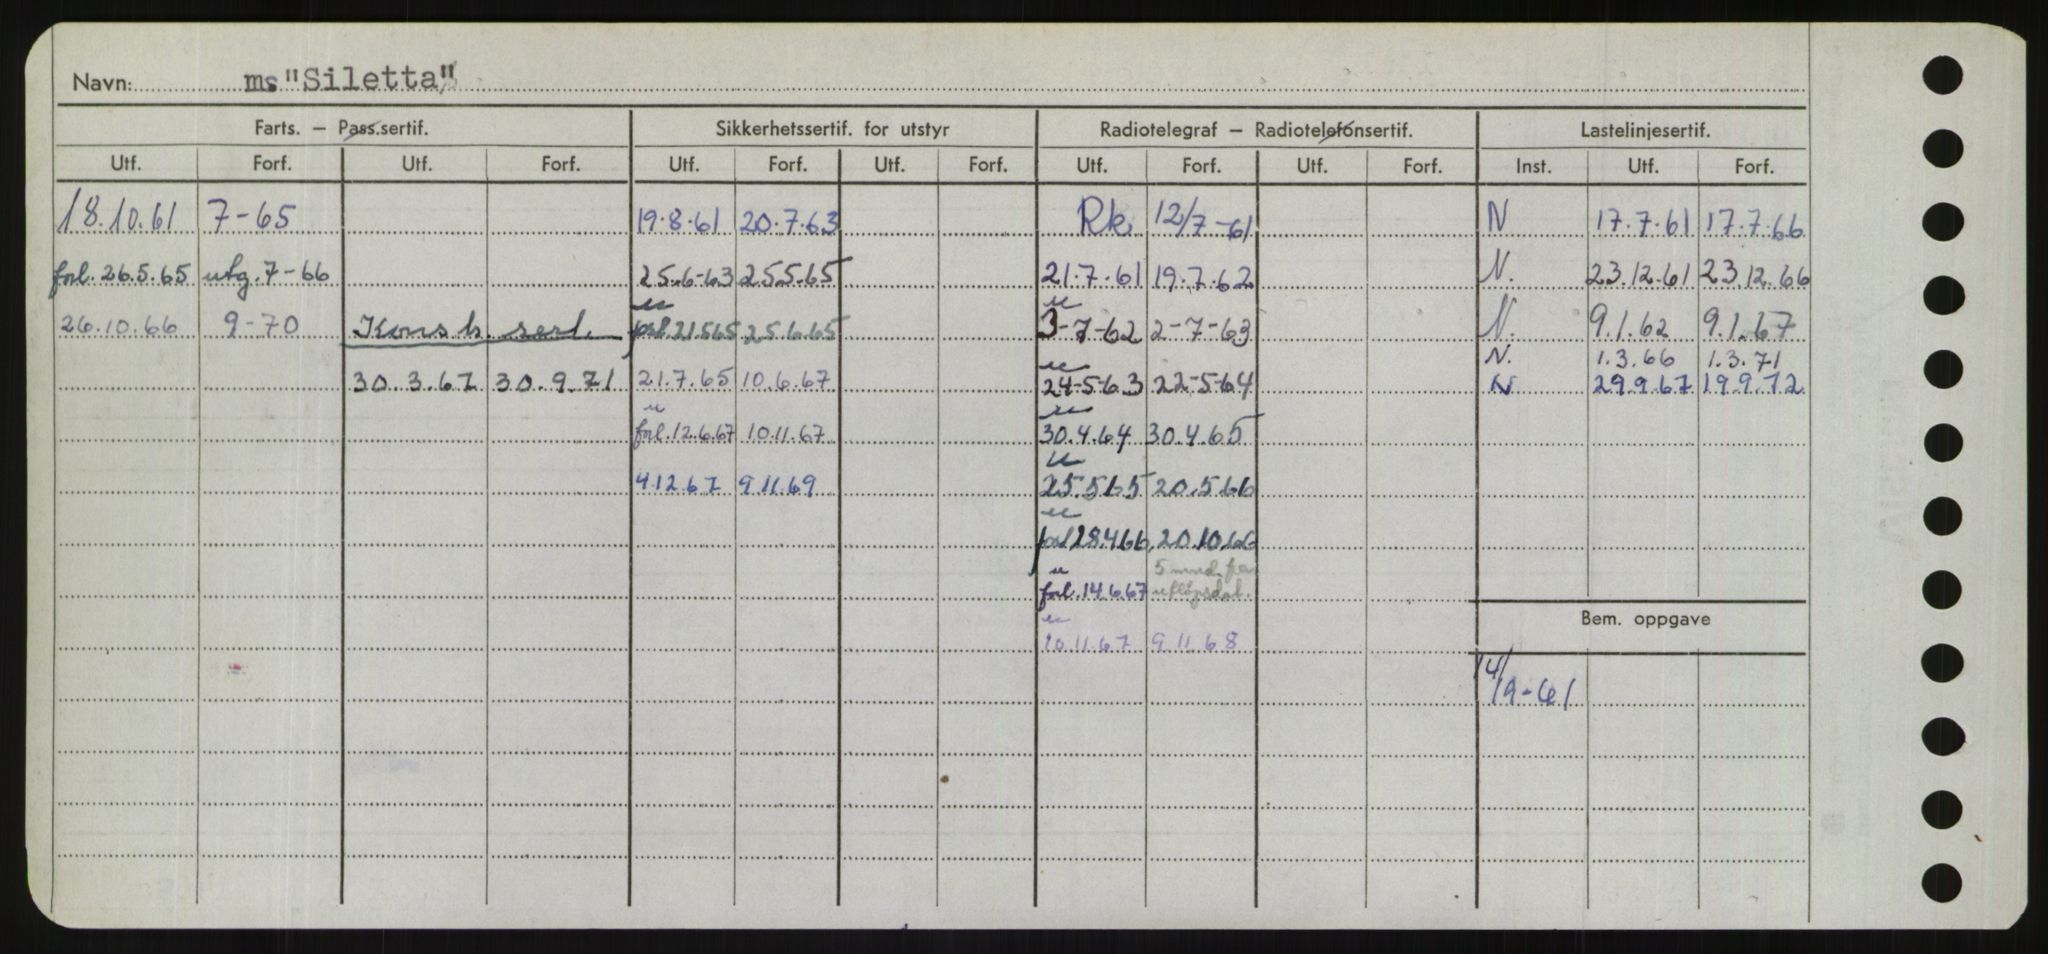 Navn: ms "Siletta"
Farts. — Pass.sertif. Sikkerhetssertif. for utstyr Radiotelegraf — Radiotelefonsertif. Lastelinjesertif.
Utf. Forf. Utf. Forf. Utf. Forf. Utf. Forf. Utf. Forf. Utf. Forf. Inst. Utf. Forf.
18.10.61 7-65 19.8.61 20.7.63 Rk. 12/7-61 N 17.7.61 17.7.66
forl. 26.5.65 utg. 7-66 25.6-63 25.5.65 21.7.61 19.7.62 N. 23.12.61 23.12.66
26.10.66 9-70 forl. 21.5.65 25.6.65 3-7-62 2-7-63 N. 9.1.62 9.1.67
N. 1.3.66 1.3.71
30.3.67 30.9.71 21.7.65 10.6.67 24-5-63 22-5-64 N 29.9.67 19.9.72
forl. 12.6.67 10.11.67 30.4.64 30.4.65
4.12.67 9.11.69 25.5.65 20.5.66
forl 28.4.66 20.10.66
5 mnd. fra
forl. 14.6.67 utløpsdat.
Bem. oppgave
10.11.67 9.11.68
14/9-61